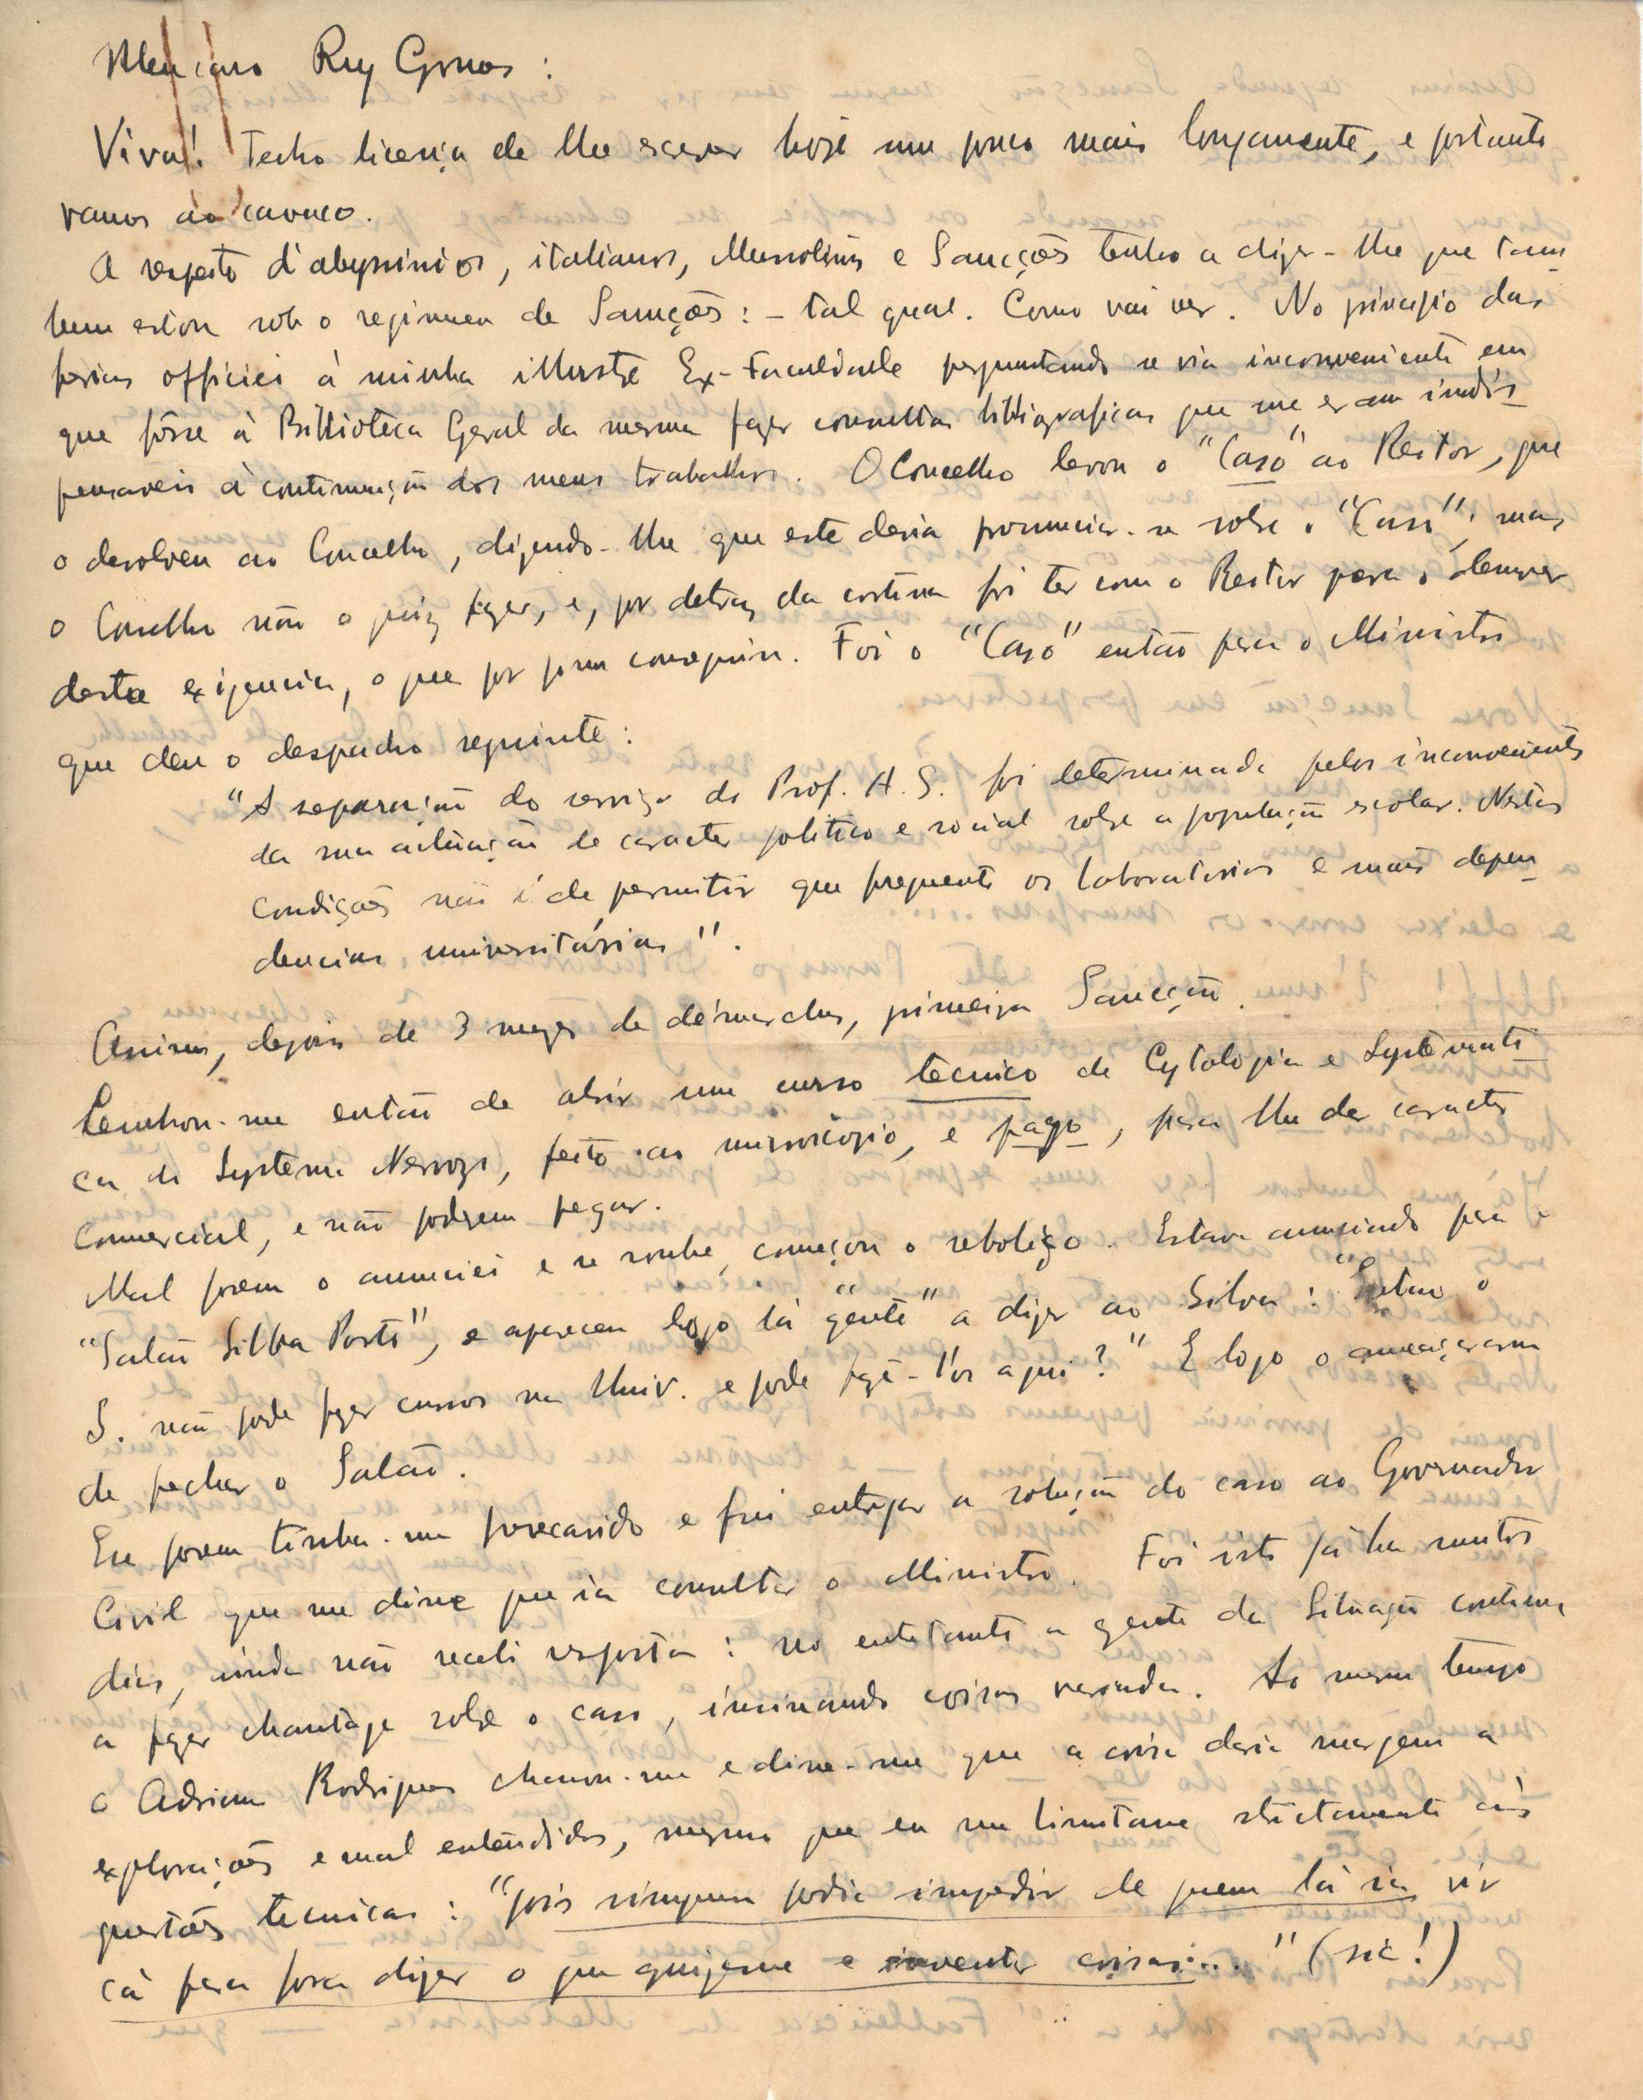 Meu caro Ruy Gomes:
Viva! Tenho licença de lhe escrever hoje um pouco mais longamente, e portanto
vamos ao cavaco.
A respeito d'abyssinios, italianos, Mussolinis e Sancções tenho a dizer-lhe que tam
bem estou sob o regimen de Sancções: - tal qual. Como vai ver. No principio das
ferias officiei á minha illustre Ex-Faculdade perguntando se via inconveniente em
que fôsse à Bibliotéca Geral da mesma fazer consultas bibliograficas que me eram indis
pensaveis á continuação dos meus trabalhos. O Concelho levou o "Caso" ao Reitor, que
o devolveu ao Concelho, dizendo-lhe que este devia pronunciar-se sobre o "Caso"; mas
o Concelho não o quiz fazer, e, por detraz da cortina foi ter com o Reitor para o demover
desta exigencia, o que por fim conseguiu. Foi o "Caso" então para o Ministro
que deu o despacho seguinte:
"A separação do serviço do Prof. A. S. foi determinada pelos inconvenientes
da sua actuação de caracter politico e social sobre a população escolar. Nestas
condições não é de permitir que frequente os laboratorios e mais depen
dencias universitárias".
Assim, depois de 3 mezes de démarches, primeira Sancção.
Lembrou-me então de abrir um curso tecnico de Cytologia e Systemati
ca do Systema Nervozo, feito ao microscopio, e pago, para lhe dar caracter
Commercial, e não poderem pegar.
Mal porem o anunciei e se soube, começou o reboliço. Estava anunciado para o
"Salão Silva Porto", e apareceu logo lá "gente" a dizer ao Silva: "Então o
S. não pode fazer cursos na Univ. e pode fazê-los aqui?" E logo o ameaçaram
de fechar o Salão.
Eu porem tinha-me precavido e fui entregar a solução do caso ao Governador
Civil que me disse que ia consultar o Ministro. Foi isto já ha muitos
dias, ainda não recebi resposta: no entretanto a gente da Situação continua
a fazer chantage sobre o caso, insinuando coisas variadas. Ao mesmo tempo
o Adriano Rodrigues chamou-me e disse-me que a coisa daria margem a
explorações e mal entendidos, mesmo que eu me limitasse strictamente ás
questões tecnicas: "pois ninguem podia impedir de quem lá ia vir
cá para fora dizer o que quizesse e inventar coisas..." (sic!)